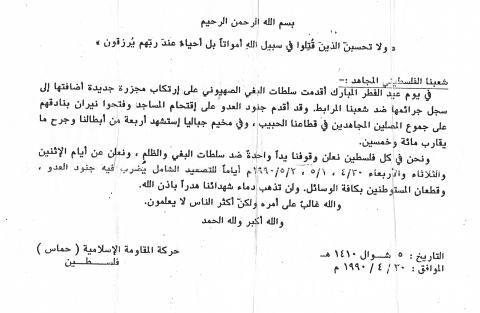 بسم الله الرحمن الرحيم
« ولا تحسبنّ الذين قُتلوا في سبيل الله أمواتاً بل أحياءٌ عند ربّهم يُرزقون »
شعبنا الفلسطيني المجاهد :-
في يوم عيد الفطر المبارك أقدمت سلطات البغي الصهيوني على إرتكاب مجزرة جديدة أضافتها إلى
سجل جرائمها ضد شعبنا المرابط. وقد أقدم جنود العدو على إقتحام المساجد وفتحوا نيران بنادقهم
على جموع المصلين المجاهدين في قطاعنا الحبيب ، وفي مخيم جباليا إستشهد أربعة من أبطالنا وجرح ما
يقارب مائة وخمسين.
ونحن في كل فلسطين نعلن وقوفنا يداً واحدةً ضد سلطات البغي والظلم ، ونعلن عن أيام الإثنين
والثلاثاء والأربعاء ٤/٣٠ ، ٥/١ ، ١٩٩٠/٥/٢م أياماً للتصعيد الشامل يُضرب فيه جنود العدو ،
وقطعان المستوطنين بكافة الوسائل. ولن تذهب دماء شهدائنا هدراً باذن الله.
والله غالبٌ على أمره ولكنّ أكثر الناس لا يعلمون.
والله أكبر ولله الحمد
التاريخ : ٥ شوال ١٤١٠ هـ
الموافق : ٣٠ / ٤ / ١٩٩٠ م
حركة المقاومة الإسلامية ( حماس )
فلسطين